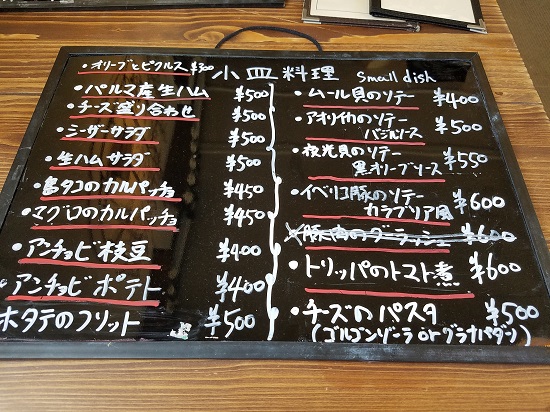 ・オリーブとピクルス ¥300
小皿料理 small dish
・パルマ産生ハム ¥500
・チーズ盛り合わせ ¥500
・シーザーサラダ ¥500
・生ハムサラダ ¥500
・真タコのカルパッチョ ¥450
・マグロのカルパッチョ ¥450
・アンチョビ枝豆 ¥400
・アンチョビポテト ¥400
ホタテのフリット ¥500
・ムール貝のソテー ¥400
・アオリイカのソテー
バジルソース ¥500
・夜光貝のソテー
黒オリーブソース ¥550
・イベリコ豚のソテー
カラブリア風 ¥600
豚肉のグーラッシュ ¥600
・トリッパのトマト煮 ¥600
・チーズのパスタ ¥500
(ゴルゴンゾーラ or グラナパダーノ)